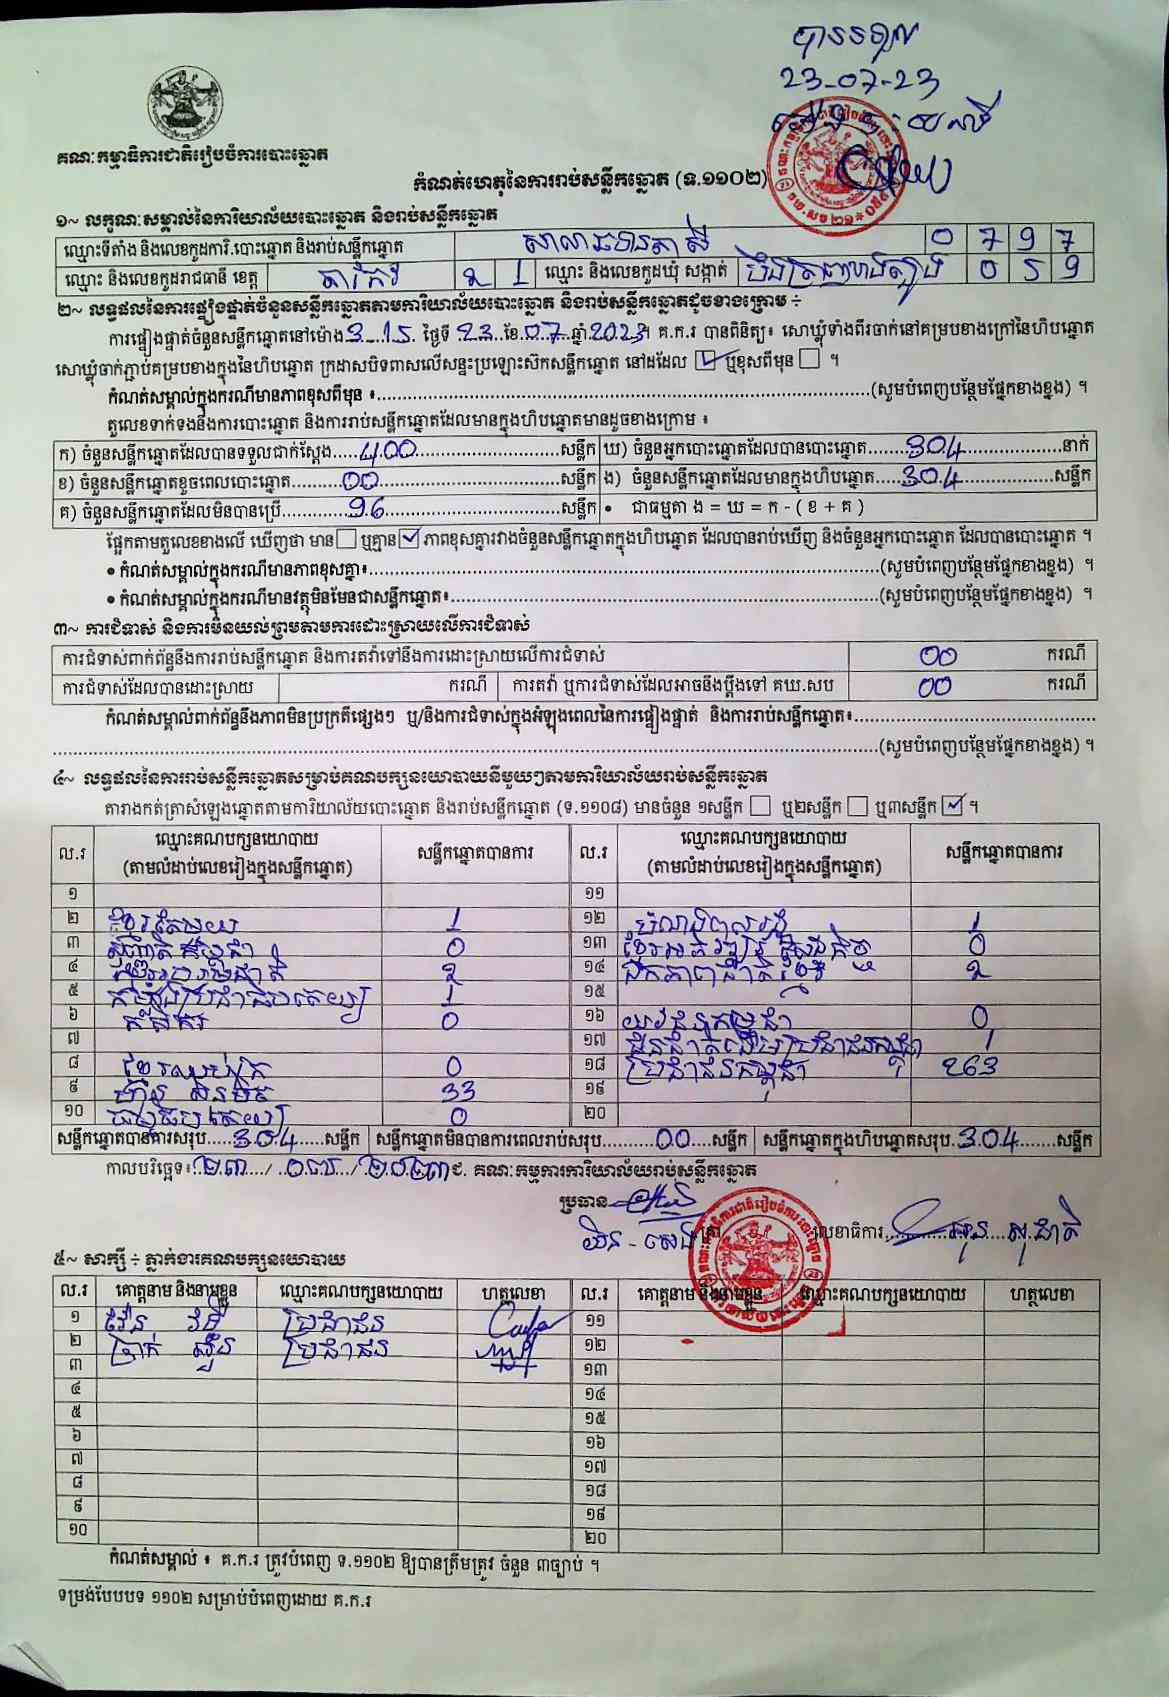 បានទទួល
23-07-23
គណៈកម្មាធិការជាតិរៀបចំការបោះឆ្នោត
កំណត់ហេតុនៃការរាប់សន្លឹកឆ្នោត (ទ.១១០២)
១~ លក្ខណៈសម្គាល់នៃការិយាល័យបោះឆ្នោត និងរាប់សន្លឹកឆ្នោត
ឈ្មោះទីតាំង និងលេខកូដការិ.បោះឆ្នោត និងរាប់សន្លឹកឆ្នោត សាលាឆទានភាសី 0 7 9 7
ឈ្មោះ និងលេខកូដរាជធានី ខេត្ត តាកែវ 2 1 ឈ្មោះ និងលេខកូដឃុំ សង្កាត់ បឹងត្រាញ់ខាងត្បូង 0 5 9
២~ លទ្ធផលនៃការផ្ទៀងផ្ទាត់ចំនួនសន្លឹកឆ្នោតតាមការិយាល័យបោះឆ្នោត និងរាប់សន្លឹកឆ្នោតដូចខាងក្រោម ÷
ការផ្ទៀងផ្ទាត់ចំនួនសន្លឹកឆ្នោតនៅម៉ោង 3.15 ថ្ងៃទី 23 ខែ 07 ឆ្នាំ 2023។ គ.ក.រ បានពិនិត្យ៖ សោឃ្លុំទាំងពីរចាក់នៅគម្របខាងក្រៅនៃហិបឆ្នោត
សោឃ្លុំចាក់ភ្ជាប់គម្របខាងក្នុងនៃហិបឆ្នោត ក្រដាសបិទពាសលើសន្ទះប្រឡោះស៊កសន្លឹកឆ្នោត នៅដដែល ☑ ឬខុសពីមុន ☐ ។
កំណត់សម្គាល់ក្នុងករណីមានភាពខុសពីមុន ៖ (សូមបំពេញបន្ថែមផ្នែកខាងខ្នង) ។
តួលេខទាក់ទងនឹងការបោះឆ្នោត និងការរាប់សន្លឹកឆ្នោតដែលមានក្នុងហិបឆ្នោតមានដូចខាងក្រោម ៖
ក) ចំនួនសន្លឹកឆ្នោតដែលបានទទួលជាក់ស្តែង 400 សន្លឹក ឃ) ចំនួនអ្នកបោះឆ្នោតដែលបានបោះឆ្នោត 304 នាក់
ខ) ចំនួនសន្លឹកឆ្នោតខូចពេលបោះឆ្នោត 00 សន្លឹក ង) ចំនួនសន្លឹកឆ្នោតដែលមានក្នុងហិបឆ្នោត 304 សន្លឹក
គ) ចំនួនសន្លឹកឆ្នោតដែលមិនបានប្រើ 96 សន្លឹក • ជាធម្មតា ង = ឃ = ក - ( ខ + គ )
ផ្អែកតាមតួលេខខាងលើ ឃើញថា មាន ☐ ឬគ្មាន ☑ ភាពខុសគ្នារវាងចំនួនសន្លឹកឆ្នោតក្នុងហិបឆ្នោត ដែលបានរាប់ឃើញ និងចំនួនអ្នកបោះឆ្នោត ដែលបានបោះឆ្នោត ។
• កំណត់សម្គាល់ក្នុងករណីមានភាពខុសគ្នា៖ (សូមបំពេញបន្ថែមផ្នែកខាងខ្នង) ។
• កំណត់សម្គាល់ក្នុងករណីមានវត្ថុមិនមែនជាសន្លឹកឆ្នោត៖ (សូមបំពេញបន្ថែមផ្នែកខាងខ្នង) ។
៣~ ការជំទាស់ និងការមិនយល់ព្រមតាមការដោះស្រាយលើការជំទាស់
ការជំទាស់ពាក់ព័ន្ធនឹងការរាប់សន្លឹកឆ្នោត និងការតវ៉ាទៅនឹងការដោះស្រាយលើការជំទាស់ 00 ករណី
ការជំទាស់ដែលបានដោះស្រាយ ករណី ការតវ៉ា ឬការជំទាស់ដែលអាចនឹងប្តឹងទៅ គឃ.សប 00 ករណី
កំណត់សម្គាល់ពាក់ព័ន្ធនឹងភាពមិនប្រក្រតីផ្សេងៗ ឬ/និងការជំទាស់ក្នុងអំឡុងពេលនៃការផ្ទៀងផ្ទាត់ និងការរាប់សន្លឹកឆ្នោត៖
(សូមបំពេញបន្ថែមផ្នែកខាងខ្នង) ។
៤~ លទ្ធផលនៃការរាប់សន្លឹកឆ្នោតសម្រាប់គណបក្សនយោបាយនីមួយៗតាមការិយាល័យរាប់សន្លឹកឆ្នោត
តារាងកត់ត្រាសំឡេងឆ្នោតតាមការិយាល័យបោះឆ្នោត និងរាប់សន្លឹកឆ្នោត (ទ.១១០៨) មានចំនួន ១សន្លឹក ☐ ឬ២សន្លឹក ☐ ឬ៣សន្លឹក ☑ ។
ល.រ ឈ្មោះគណបក្សនយោបាយ (តាមលំដាប់លេខរៀងក្នុងសន្លឹកឆ្នោត) សន្លឹកឆ្នោតបានការ ល.រ ឈ្មោះគណបក្សនយោបាយ (តាមលំដាប់លេខរៀងក្នុងសន្លឹកឆ្នោត) សន្លឹកឆ្នោតបានការ
១ ១១
២ ខ្មែរតែមួយ 1 ១២ 1
៣ សញ្ជាតិកម្ពុជា 0 ១៣ ខ្មែរអភិវឌ្ឍន៍សេដ្ឋកិច្ច 0
៤ ខ្មែររួបរួមជាតិ 2 ១៤ ឯកភាពជាតិខ្មែរ 2
៥ កម្លាំងប្រជាធិបតេយ្យ 1 ១៥
៦ កសិករ 0 ១៦ យុវជនកម្ពុជា 0
៧ ១៧ ជនជាតិដើមប្រជាធនកម្ពុជា 1
៨ ខ្មែរឈប់ក្រ 0 ១៨ ប្រជាជនកម្ពុជា 263
៩ ហ៊្វុនស៊ិនប៉ិច 33 ១៩
១០ ធម្មាធិបតេយ្យ 0 ២០
សន្លឹកឆ្នោតបានការសរុប 304 សន្លឹក សន្លឹកឆ្នោតមិនបានការពេលរាប់សរុប 00 សន្លឹក សន្លឹកឆ្នោតក្នុងហិបឆ្នោតសរុប 304 សន្លឹក
កាលបរិច្ឆេទ៖ ២៣ / ០៧ / ២០២៣ ជ. គណៈកម្មការការិយាល័យរាប់សន្លឹកឆ្នោត
ប្រធាន
យិន - សេង លេខាធិការ អុន សុជាតិ
៥~ សាក្សី ÷ ភ្នាក់ងារគណបក្សនយោបាយ
ល.រ គោត្តនាម និងនាមខ្លួន ឈ្មោះគណបក្សនយោបាយ ហត្ថលេខា ល.រ គោត្តនាម និងនាមខ្លួន ឈ្មោះគណបក្សនយោបាយ ហត្ថលេខា
១ វ៉ែន វទី ប្រជាជន ១១
២ ប្រាក់ ស៊ីន ប្រជាជន ១២
៣ ១៣
៤ ១៤
៥ ១៥
៦ ១៦
៧ ១៧
៨ ១៨
៩ ១៩
១០ ២០
កំណត់សម្គាល់ ៖ គ.ក.រ ត្រូវបំពេញ ទ.១១០២ ឱ្យបានត្រឹមត្រូវ ចំនួន ៣ច្បាប់ ។
ទម្រង់បែបបទ ១១០២ សម្រាប់បំពេញដោយ គ.ក.រ